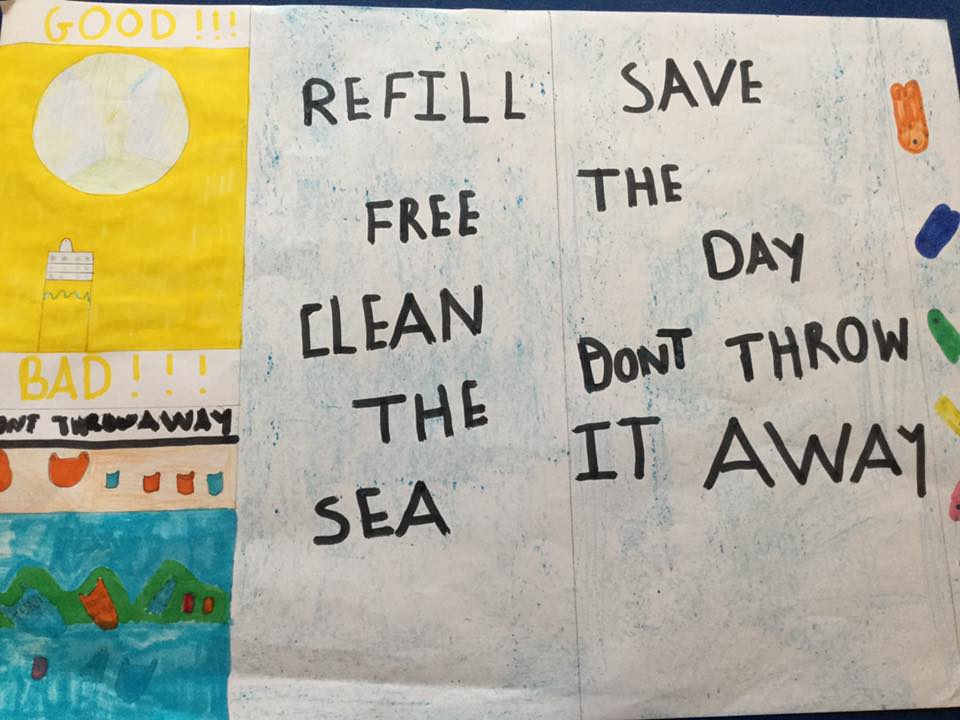 GOOD!!!
BAD!!!
ONT THROW AWAY
REFILL
FREE
CLEAN
THE
SEA
SAVE
THE
DAY
DONT THROW
IT AWAY